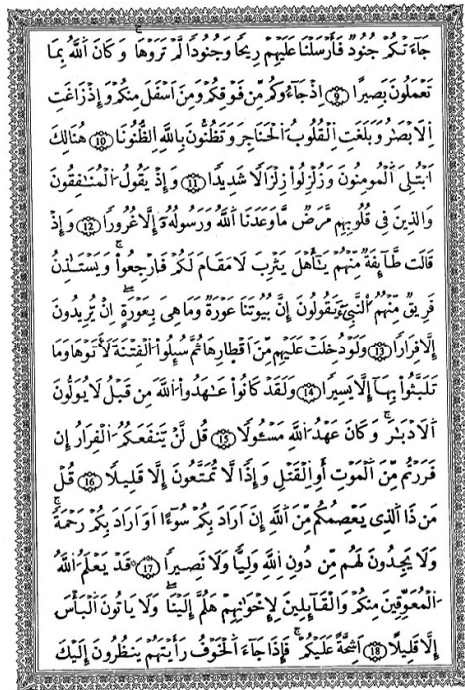 جَآءَتْكُمْ جُنُودٌ فَأَرْسَلْنَا عَلَيْهِمْ رِيحًا وَجُنُودًا لَّمْ تَرَوْهَا وَكَانَ اَللَّهُ بِمَا
تَعْمَلُونَ بَصِيرًا 9 إِذْ جَآءُوكُم مِّن فَوْقِكُمْ وَمِنَ اَسْفَلَ مِنكُمْ وَإِذْ زَاغَتِ
اِلَابْصَٰرُ وَبَلَغَتِ اِلْقُلُوبُ اُلْحَنَاجِرَ وَتَظُنُّونَ بِاللَّهِ اِلظُّنُونَا 10 هُنَالِكَ
اَبْتُلِىَ اَلْمُومِنُونَ وَزُلْزِلُوا زِلْزَالًا شَدِيدًا 11 وَإِذْ يَقُولُ اُلْمُنَٰفِقُونَ
وَالذِينَ فِى قُلُوبِهِم مَّرَضٌ مَّا وَعَدَنَا اَللَّهُ وَرَسُولُهُۥٓ إِلَّا غُرُورًا 12 وَإِذْ
قَالَت طَّآئِفَةٌ مِّنْهُمْ يَٰٓأَهْلَ يَثْرِبَ لَا مَقَامَ لَكُمْ فَارْجِعُوا وَيَسْتَٰذِنُ
فَرِيقٌ مِّنْهُمُ اُلنَّبِىٓءَ يَقُولُونَ إِنَّ بُيُوتَنَا عَوْرَةٌ وَمَا هِىَ بِعَوْرَةٍ اِنْ يُّرِيدُونَ
إِلَّا فِرَارًا 13 وَلَوْ دُخِلَتْ عَلَيْهِم مِّنَ اَقْطِارِهَا ثُمَّ سُئِلُوا اُلْفِتْنَةَ لَأَتَوْهَا وَمَا
تَلَبَّثُوا بِهَآ إِلَّا يَسِيرًا 14 وَلَقَدْ كَانُوا عَٰهَدُوا اُللَّهَ مِن قَبْلُ لَا يُوَلُّونَ
اَلَادْبَٰرَ وَكَانَ عَهْدُ اُللَّهِ مَسْـُٔولًا 15 قُل لَّنْ يَّنفَعَكُمُ اُلْفِرَارُ إِن
فَرَرْتُم مِّنَ اَلْمَوْتِ أَوِ اِلْقَتْلِ وَإِذًا لَّا تُمَتَّعُونَ إِلَّا قَلِيلًا 16 قُلْ
مَن ذَا اَلذِى يَعْصِمُكُم مِّنَ اَللَّهِ إِنَ اَرَادَ بِكُمْ سُوٓءًا اَوَ اَرَادَ بِكُمْ رَحْمَةً
وَلَا يَجِدُونَ لَهُم مِّن دُونِ اِللَّهِ وَلِيًّا وَلَا نَصِيرًا 17 قَدْ يَعْلَمُ اُللَّهُ
اُلْمُعَوِّقِينَ مِنكُمْ وَالْقَآئِلِينَ لِإِخْوَٰنِهِمْ هَلُمَّ إِلَيْنَا وَلَا يَاتُونَ اَلْبَأْسَ
إِلَّا قَلِيلًا 18 اَشِحَّةً عَلَيْكُمْ فَإِذَا جَآءَ اَلْخَوْفُ رَأَيْتَهُمْ يَنظُرُونَ إِلَيْكَ